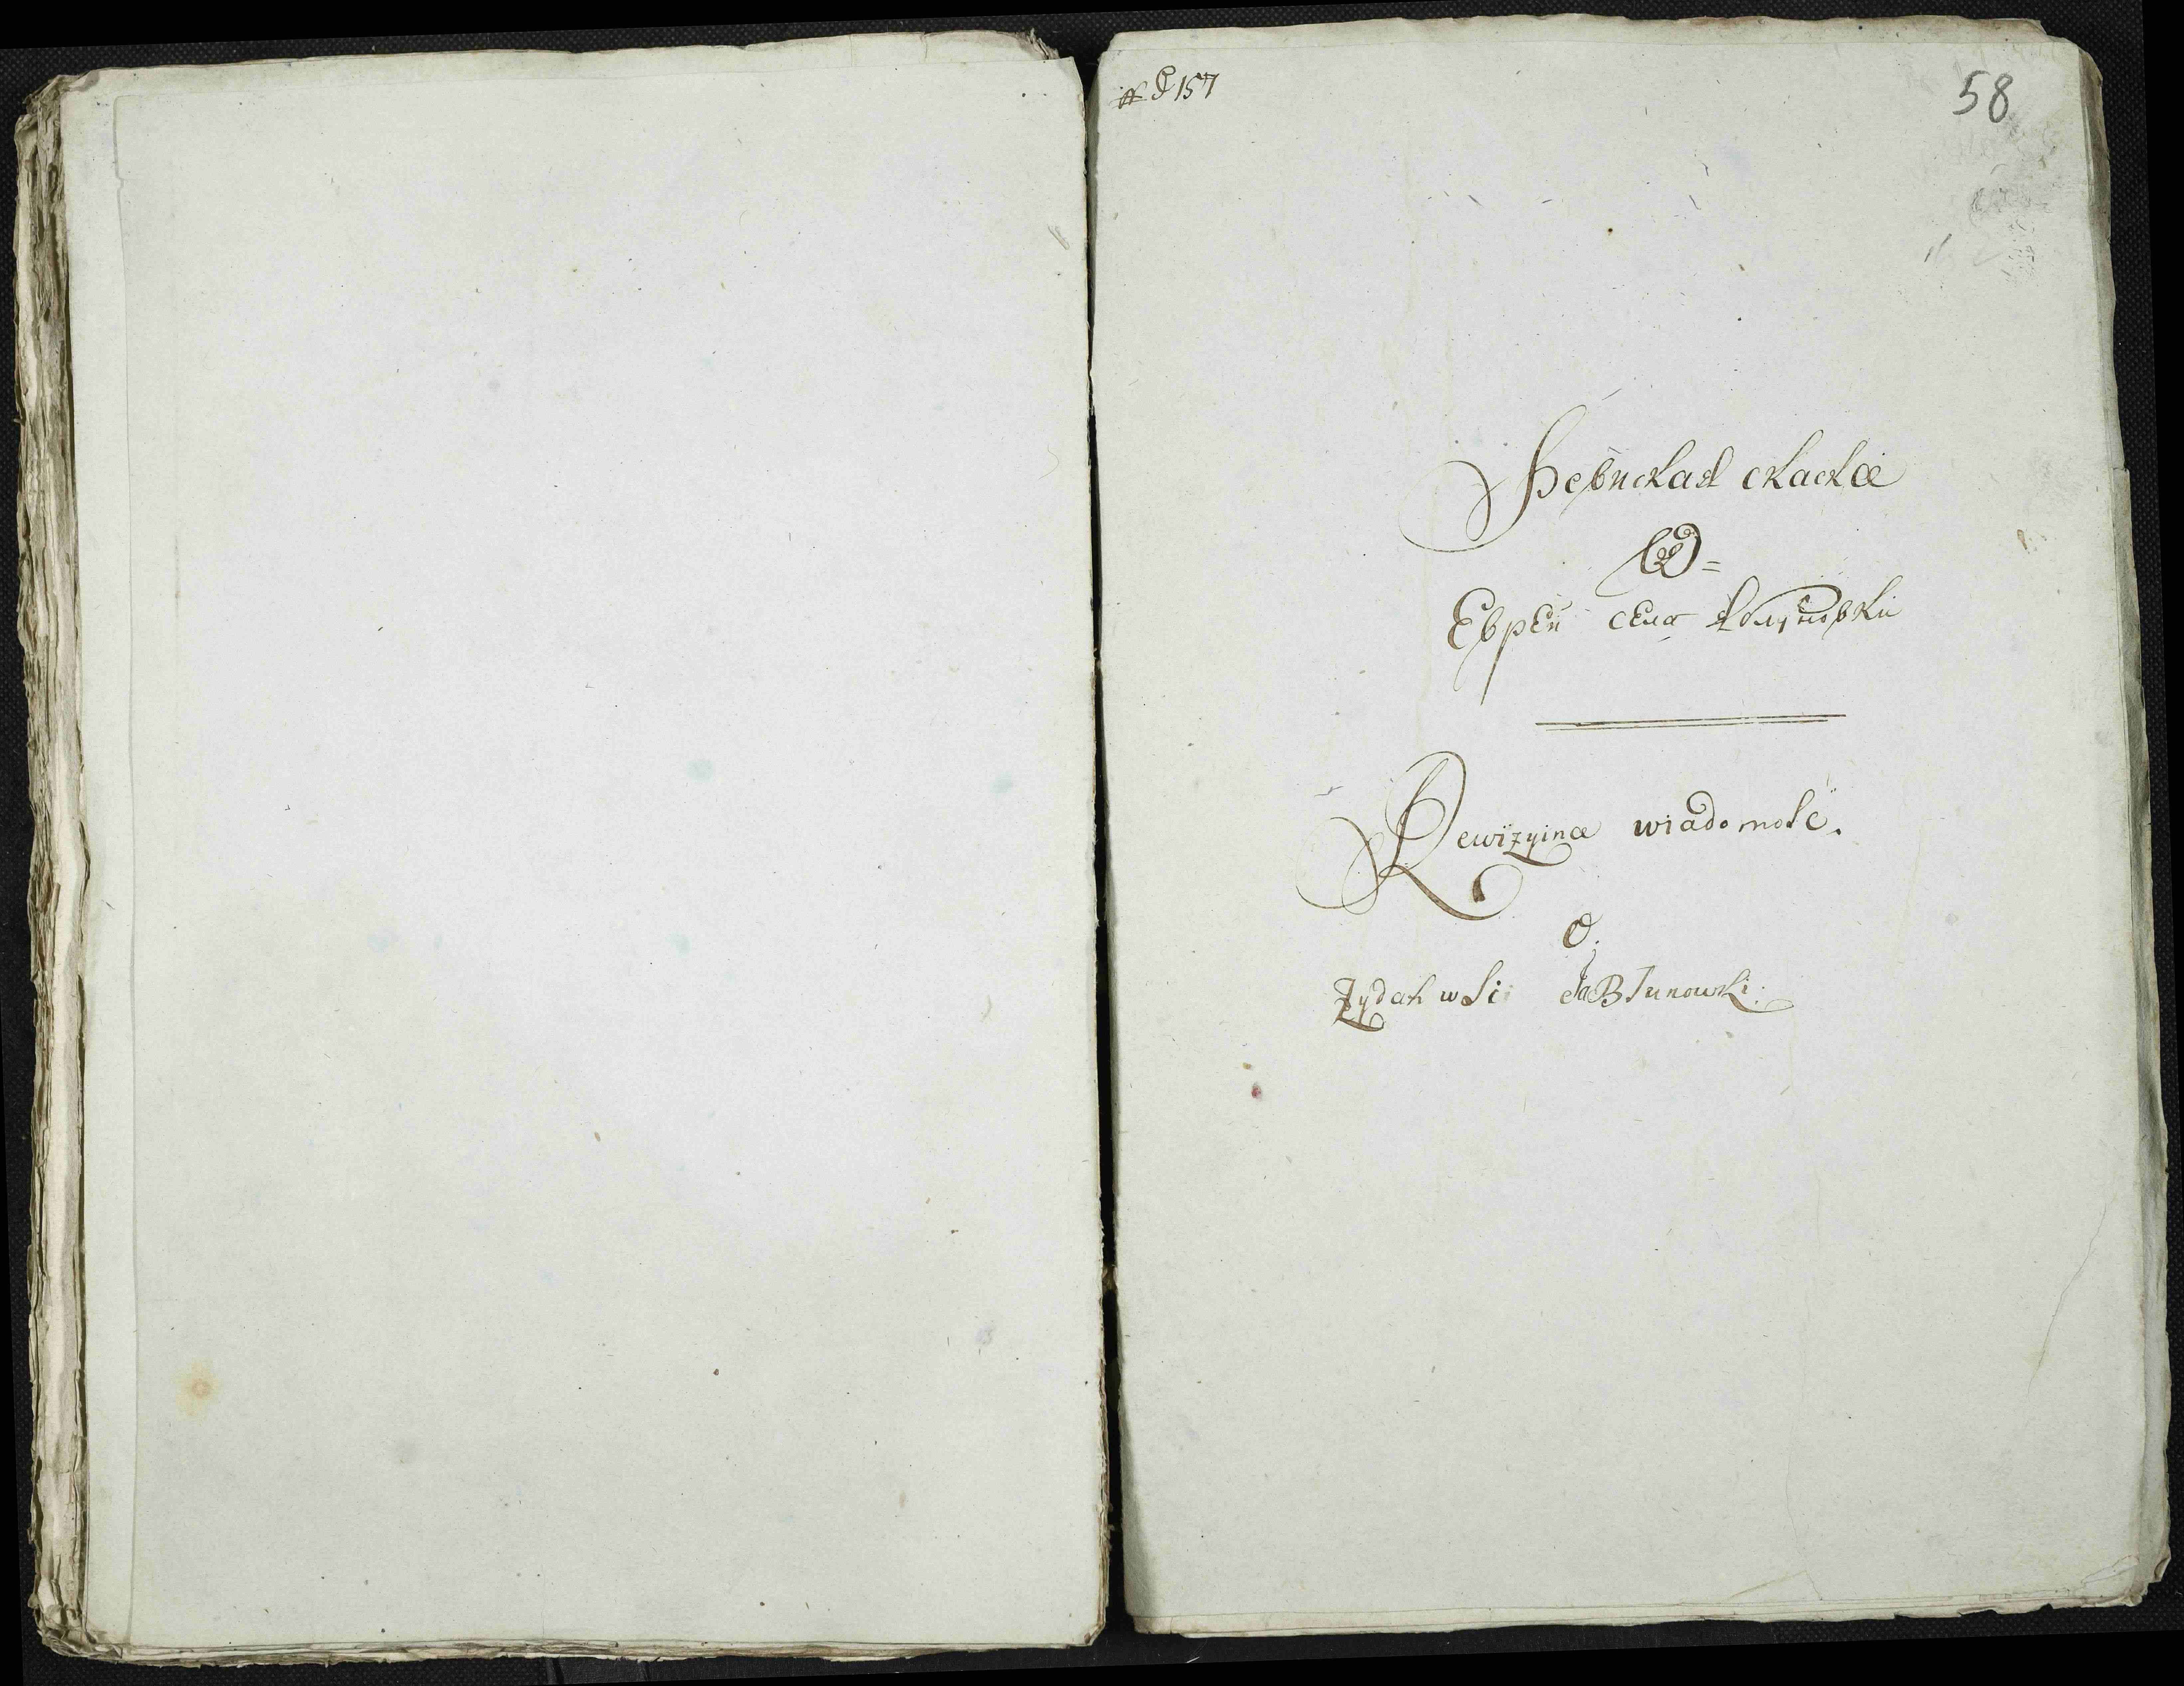 № 157
58
Ревиская скаска
О =
Еврей села Яблуновки
Rewizyina wiadomość.
O.
Żydah wsi JaBłunowki.